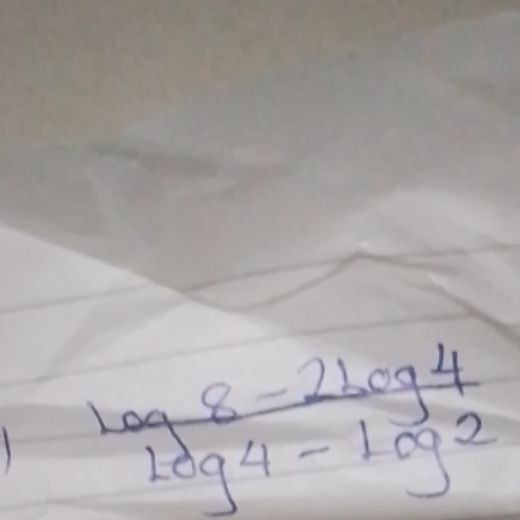 ) Log 8 - 2Log 4
Log 4 - Log 2